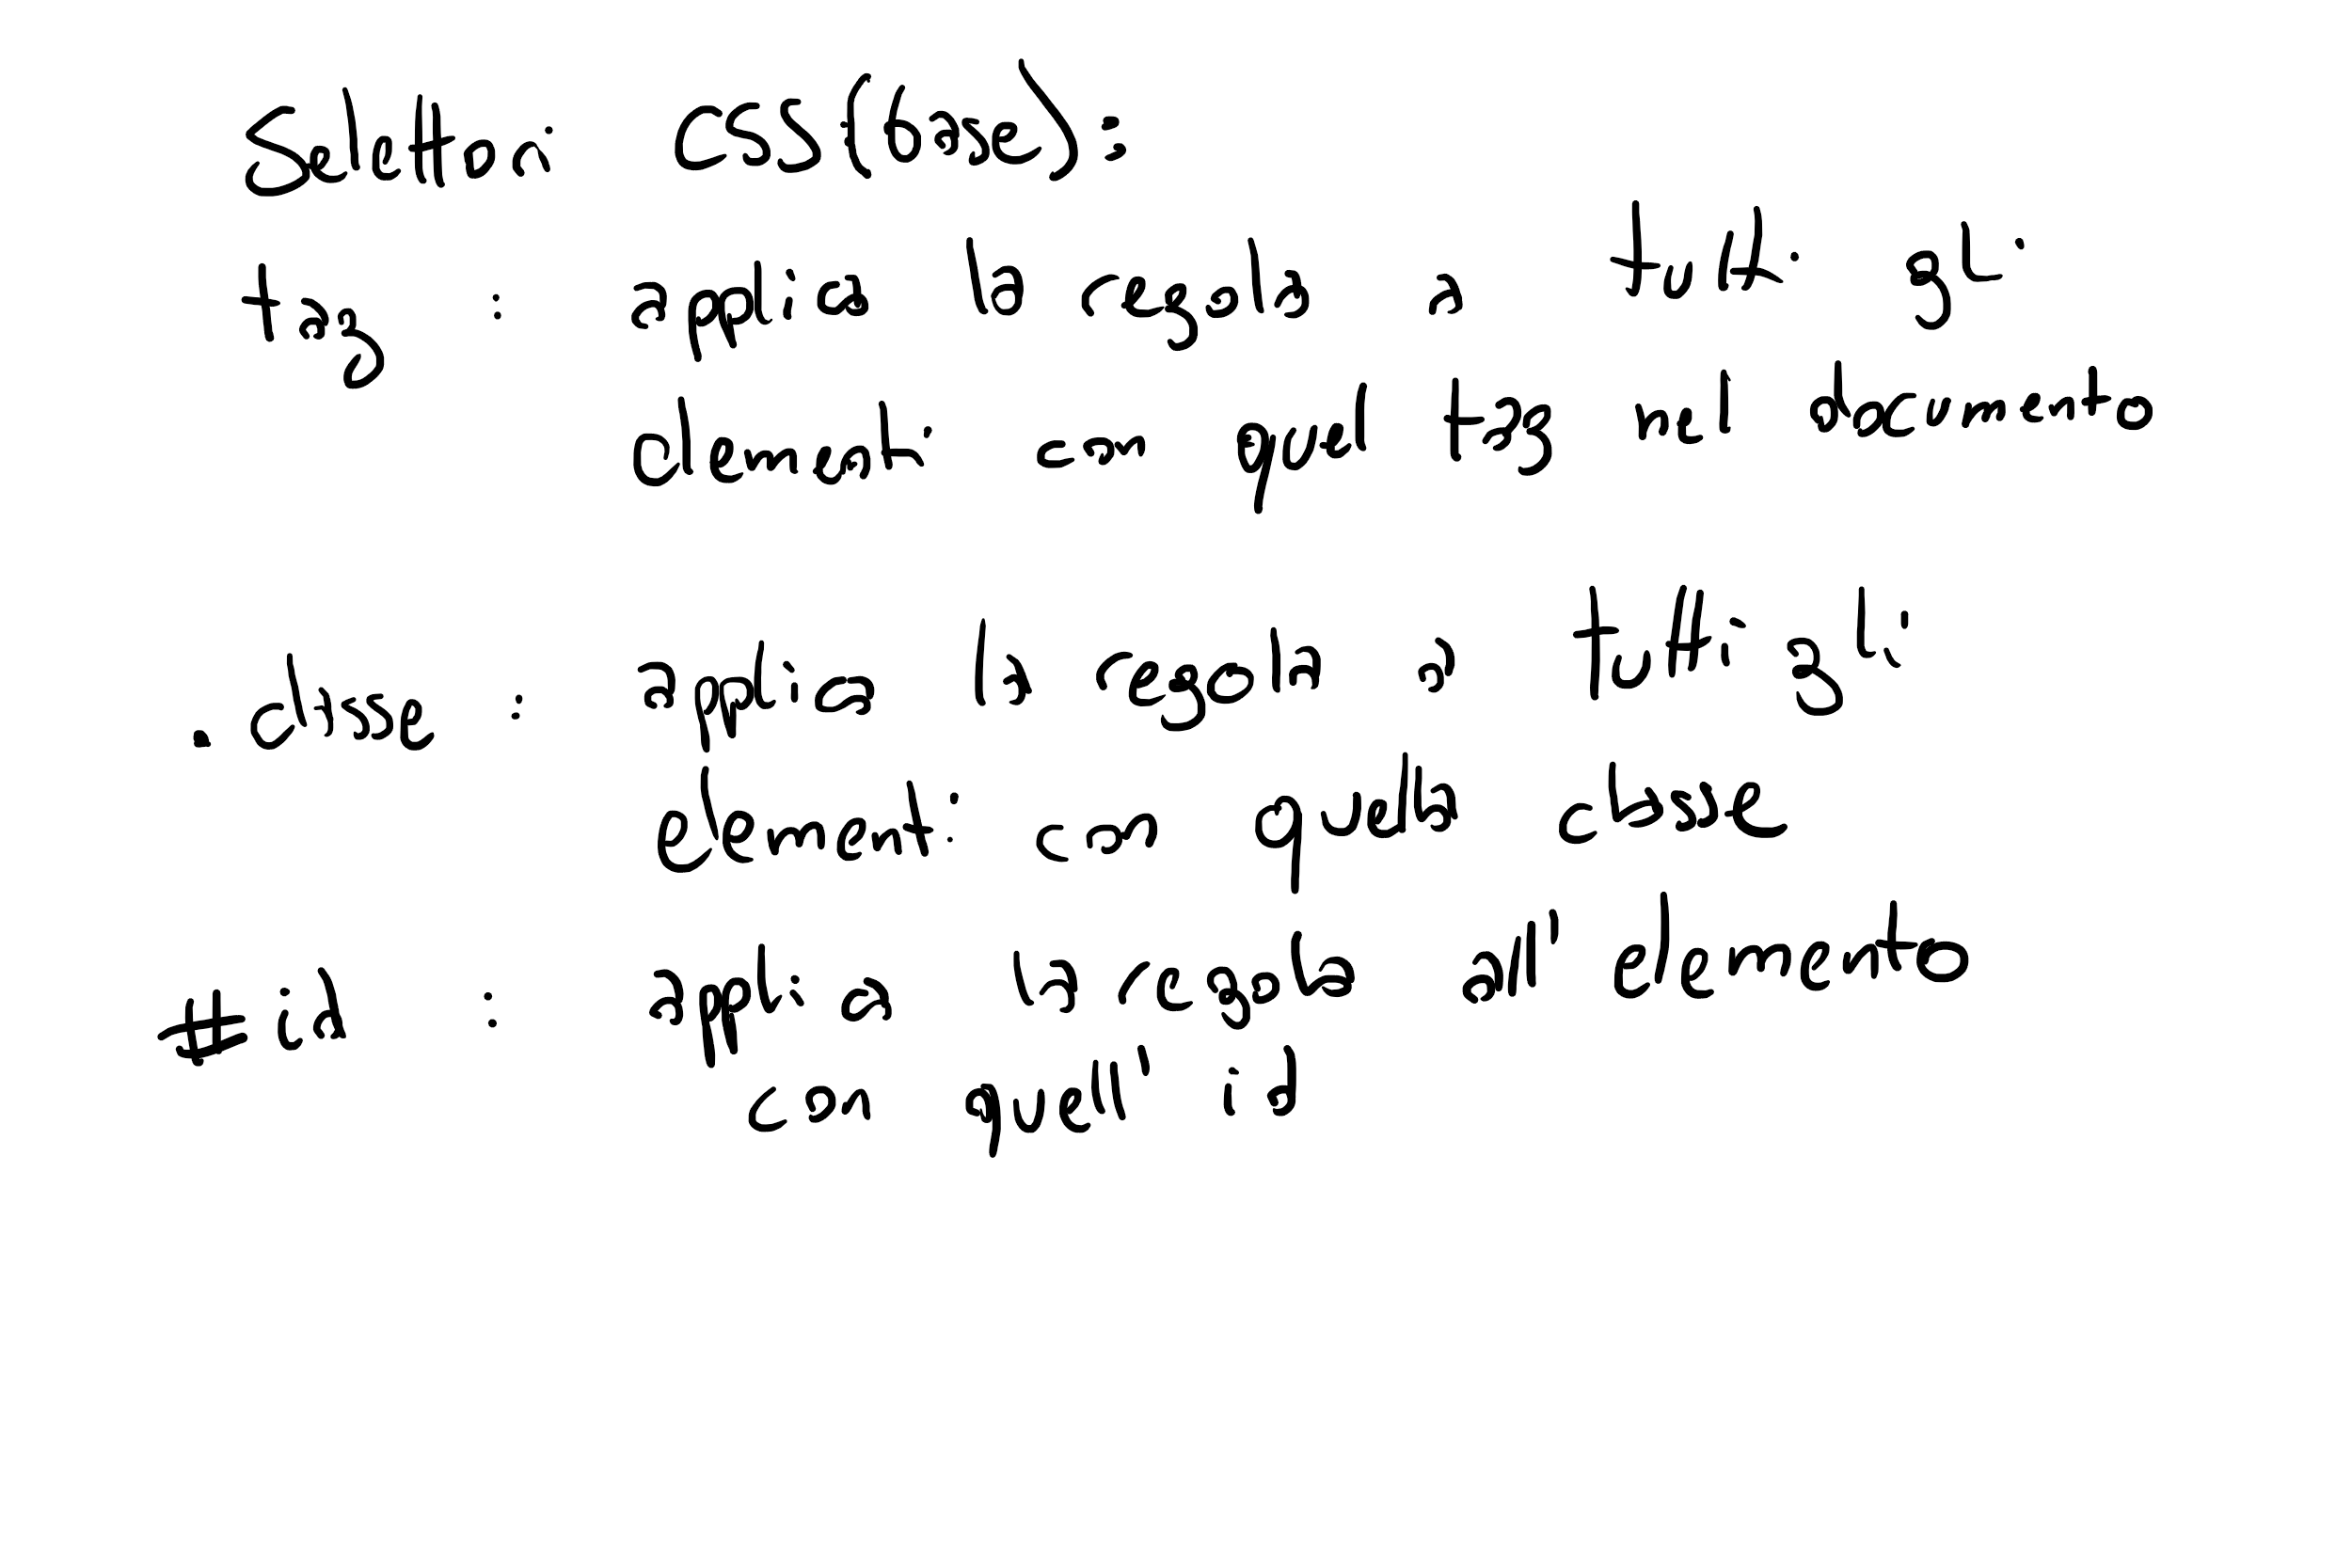 Selettori CSS (base):
tag : applica la regola a tutti gli
elementi con quel tag nel documento
.classe : applica la regola a tutti gli
elementi con quella classe
#id : applica la regola all'elemento
con quell'id